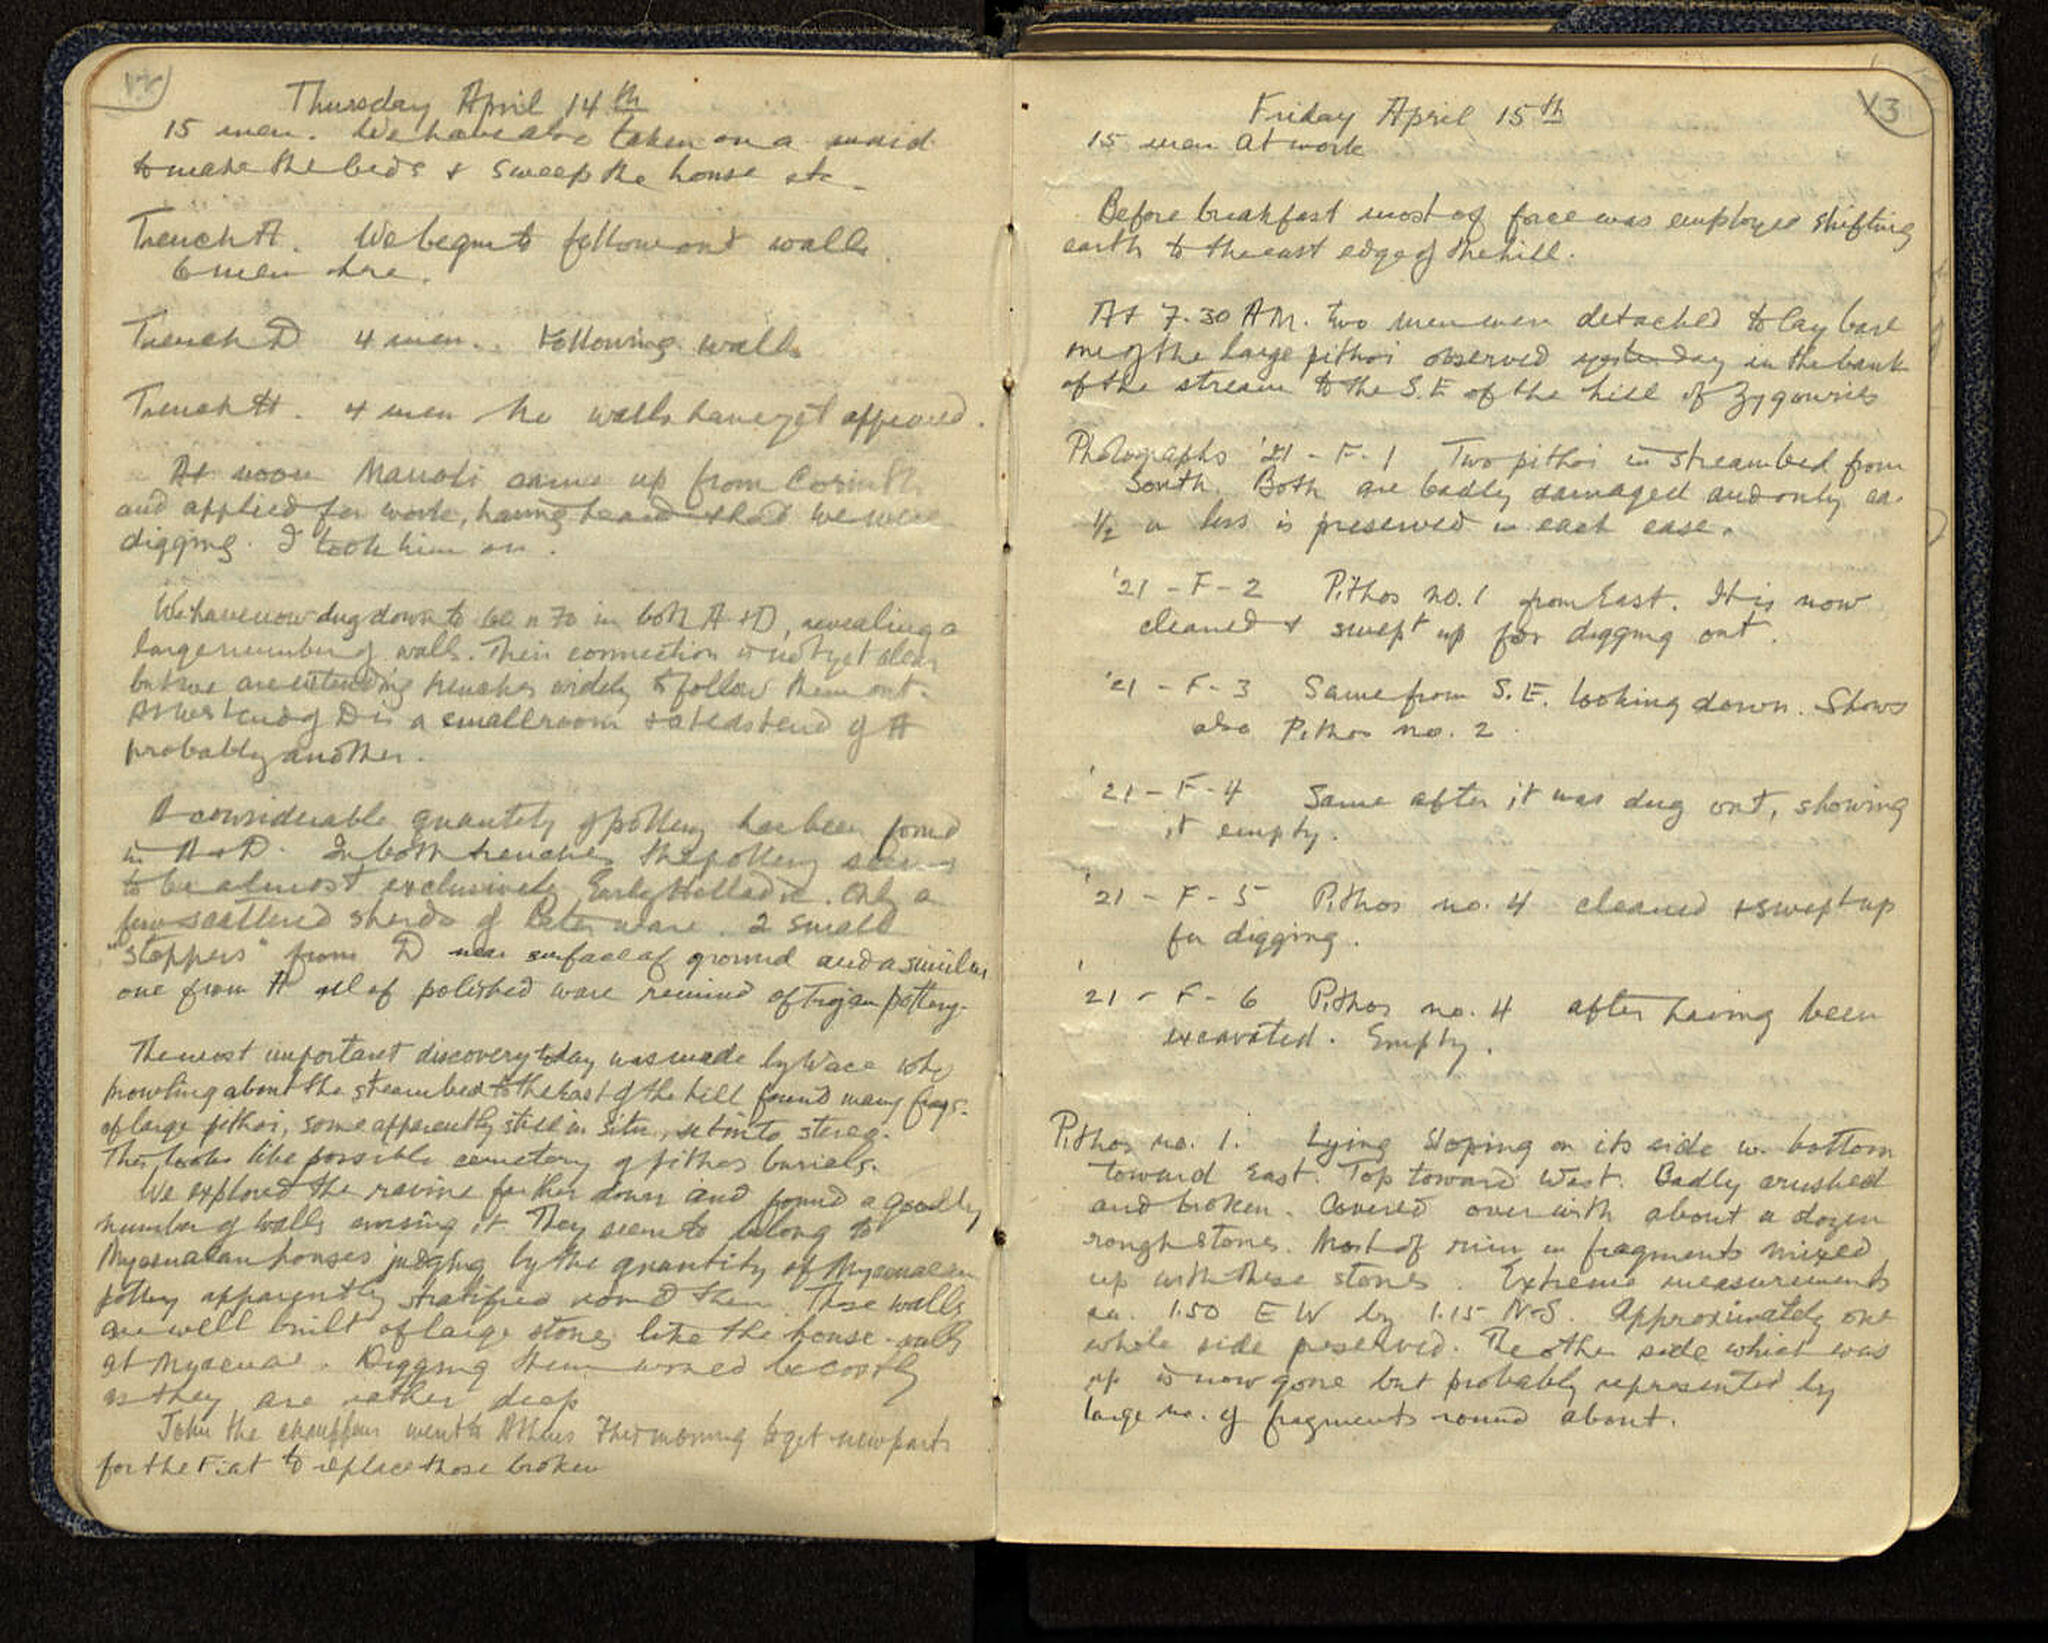 12
Thursday April 14th
15 men. We have also taken on a maid
to make the beds & sweep the house etc.
Trench A. We begin to follow out walls
6 men here.
Trench D 4 men. Following walls
Trench H. 4 men No walls have yet appeared.
At noon Manoli came up from Corinth
and applied for work, having heard that we were
digging. I took him on.
We have now dug down to 60 or 70 in both A & D, revealing a
large number of walls. Their connection is not yet clear
but we are extending trenches widely to follow them out.
At West end of D is a small room & at East end of A
probably another.
A considerable quantity of pottery has been found
in A & D. In both trenches the pottery seems
to be almost exclusively Early Helladic. Only a
few scattered sherds of later ware. 2 small
"stoppers" from D near surface of ground and a similar
one from A all of polished ware remind of Trojan pottery.
The most important discovery today was made by Wace who
prowling about the streambed to the East of the hill found many frags.
of large pithoi, some apparently still in situ, set into stereo.
This looks like possible cemetery of pithos burials.
We explored the ravine farther down and found a goodly
number of walls crossing it. They seem to belong to
Mycenaean houses judging by the quantity of Mycenaean
pottery apparently stratified round them. These walls
are well built of large stones like the house-walls
at Mycenae. Digging them would be costly
as they are rather deep
John the chauffeur went to Athens this morning to get new parts
for the Fiat to replace those broken
13
Friday April 15th
15 men at work
Before breakfast most of force was employed shifting
earth to the east edge of the hill.
At 7.30 AM. two men were detached to lay bare
one of the large pithoi observed yesterday in the bank
of the stream to the S.E of the hill of Zygouries
Photographs '21 - F - 1 Two pithoi in streambed from
South. Both are badly damaged and only ca.
1/2 or less is preserved in each case.
'21 - F - 2 Pithos no. 1 from East. It is now
cleaned & swept up for digging out.
'21 - F - 3 Same from S.E. looking down. Shows
also Pithos no. 2.
'21 - F - 4 Same after it was dug out, showing
it empty.
'21 - F - 5 Pithos no. 4 cleaned & swept up
for digging.
'21 - F - 6 Pithos no. 4 after having been
excavated. Empty.
Pithos no. 1. Lying sloping on its side w. bottom
toward East. Top toward West. Badly crushed
and broken. Covered over with about a dozen
rough stones. Most of rim in fragments mixed
up with these stones. Extreme measurements
ca. 1.50 E W by 1.15 N-S. Approximately one
whole side preserved. The other side which was
up is now gone but probably represented by
large no. of fragments round about.